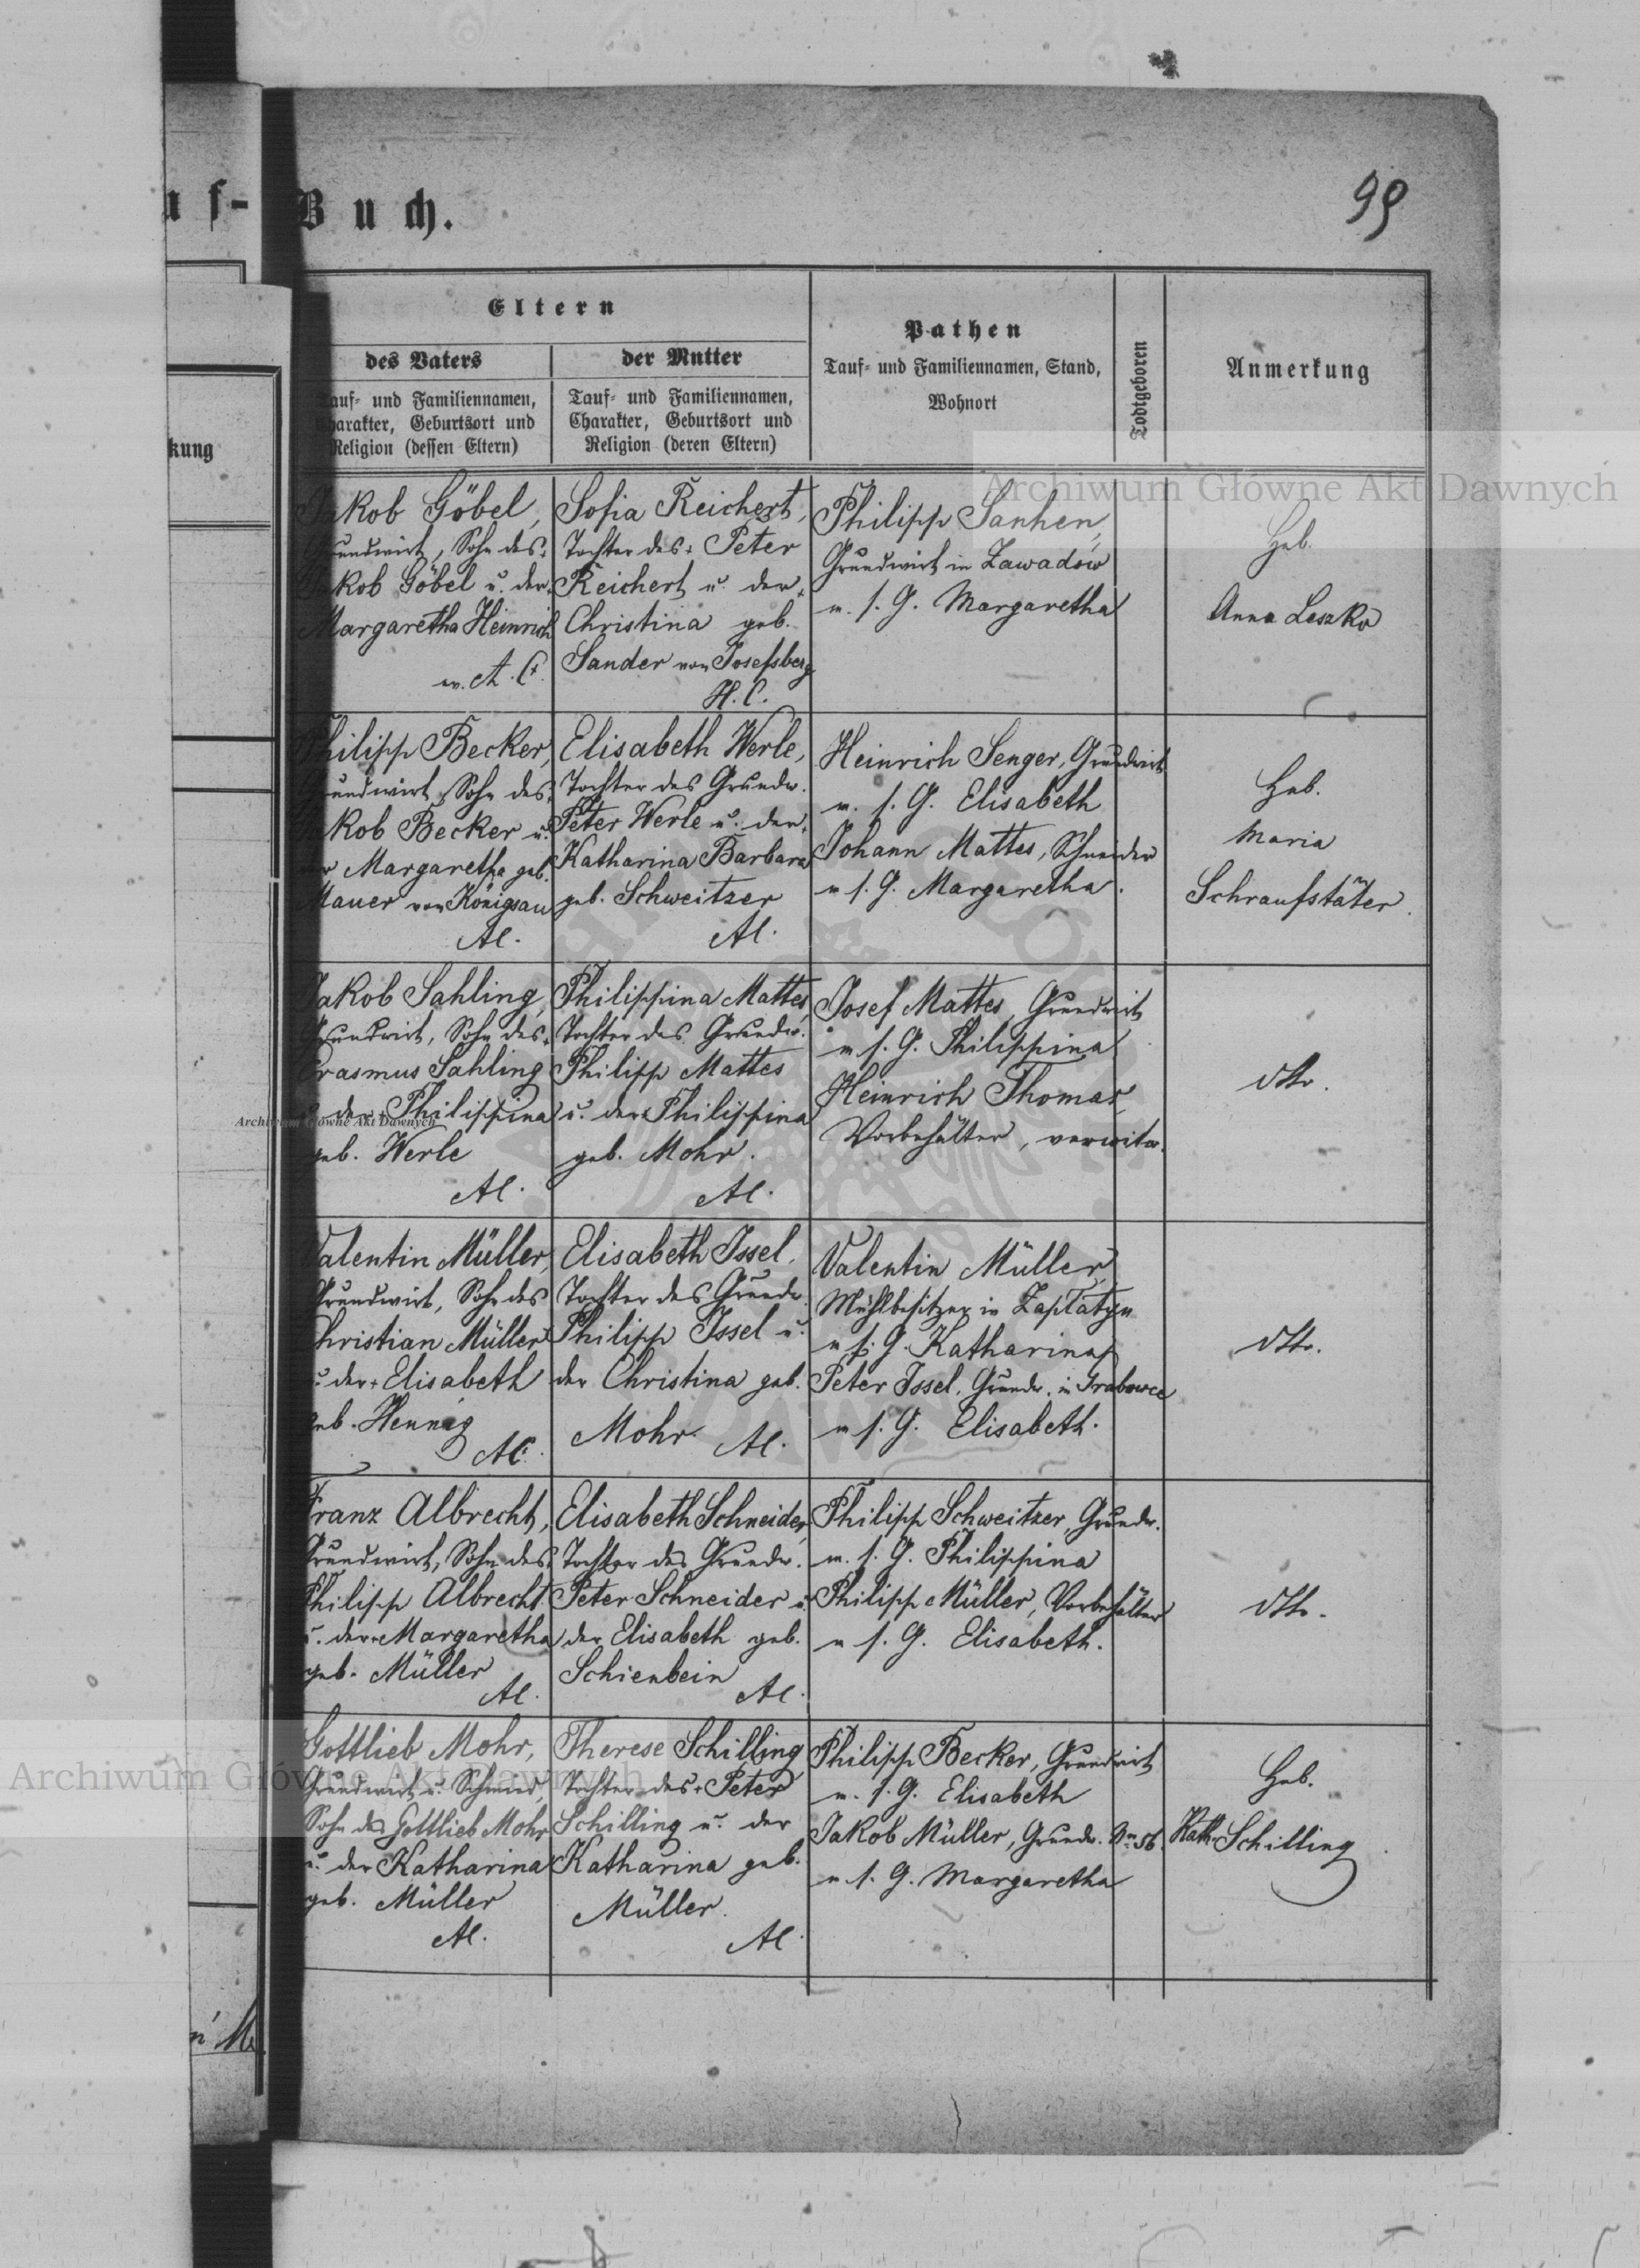 uf-
Buch.
99
kung
Eltern
des Vaters
der Mutter
Tauf- und Familiennamen,
Charakter, Geburtsort und
Religion (dessen Eltern)
Tauf- und Familiennamen,
Charakter, Geburtsort und
Religion (deren Eltern)
Pathen
Tauf- und Familiennamen, Stand,
Wohnort
Todtgeboren
Anmerkung
Jakob Göbel,
Grundwirt, Sohn des +
Jakob Göbel u. der +
Margaretha Heinrich
ev. A. C.
Sofia Reichert,
Tochter des + Peter
Reichert u. der +
Christina geb.
Sander von Josefsberg
H. C.
Philipp Sanhen,
Grundwirt in Zawadów
u. s. G. Margaretha
Heb.
Anna Leszko
Philipp Becker,
Grundwirt, Sohn des +
Jakob Becker u.
der Margaretha geb.
Mauer von Königsau
AC.
Elisabeth Werle,
Tochter des Grundw.
Peter Werle u. der +
Katharina Barbara
geb. Schweitzer
AC.
Heinrich Senger, Grundwirt
u. s. G. Elisabeth
Johann Mattes, Schneider
u s. G. Margaretha.
Heb.
Maria
Schraufstäter.
Jakob Sahling,
Grundwirt, Sohn des +
Erasmus Sahling
u. der + Philippina
geb. Werle
AC.
Philippina Mattes,
Tochter des Grundw.
Philipp Mattes
u. der + Philippina
geb. Mohr.
AC.
Josef Mattes, Grundwirt
u s. G. Philippina
Heinrich Thomas,
Vorbehälter, verwitw.
dtto.
Valentin Müller,
Grundwirt, Sohn des
Christian Müller
u. der + Elisabeth
geb. Hennig
AC.
Elisabeth Issel,
Tochter des Grundw.
Philipp Issel u.
der Christina geb.
Mohr. AC.
Valentin Müller,
Mühlbesitzer in Zapłatyn
u s. G. Katharina
Peter Issel, Grundw. in Grabowce
u s. G. Elisabeth.
dtto.
Franz Albrecht,
Grundwirt, Sohn des +
Philipp Albrecht
u. der + Margaretha
geb. Müller
AC.
Elisabeth Schneider,
Tochter des Grundw.
Peter Schneider u
der Elisabeth geb.
Schienbein
AC.
Philipp Schweitzer, Grundw.
u. s. G. Philippina
Philipp Müller, Vorbehälter
u s. G. Elisabeth.
dtto.
Gottlieb Mohr,
Grundwirt u. Schmied,
Sohn des Gottlieb Mohr
u. der Katharina
geb. Müller
AC.
Therese Schilling
Tochter des + Peter
Schilling u. der
Katharina geb.
Müller.
AC.
Philipp Becker, Grundwirt
u. s. G. Elisabeth
Jakob Müller, Grundw. No 56.
u s. G. Margaretha
Heb.
Kath. Schilling
Archiwum Główne Akt Dawnych
Archiwum Główne Akt Dawnych
Archiwum Główne Akt Dawnych